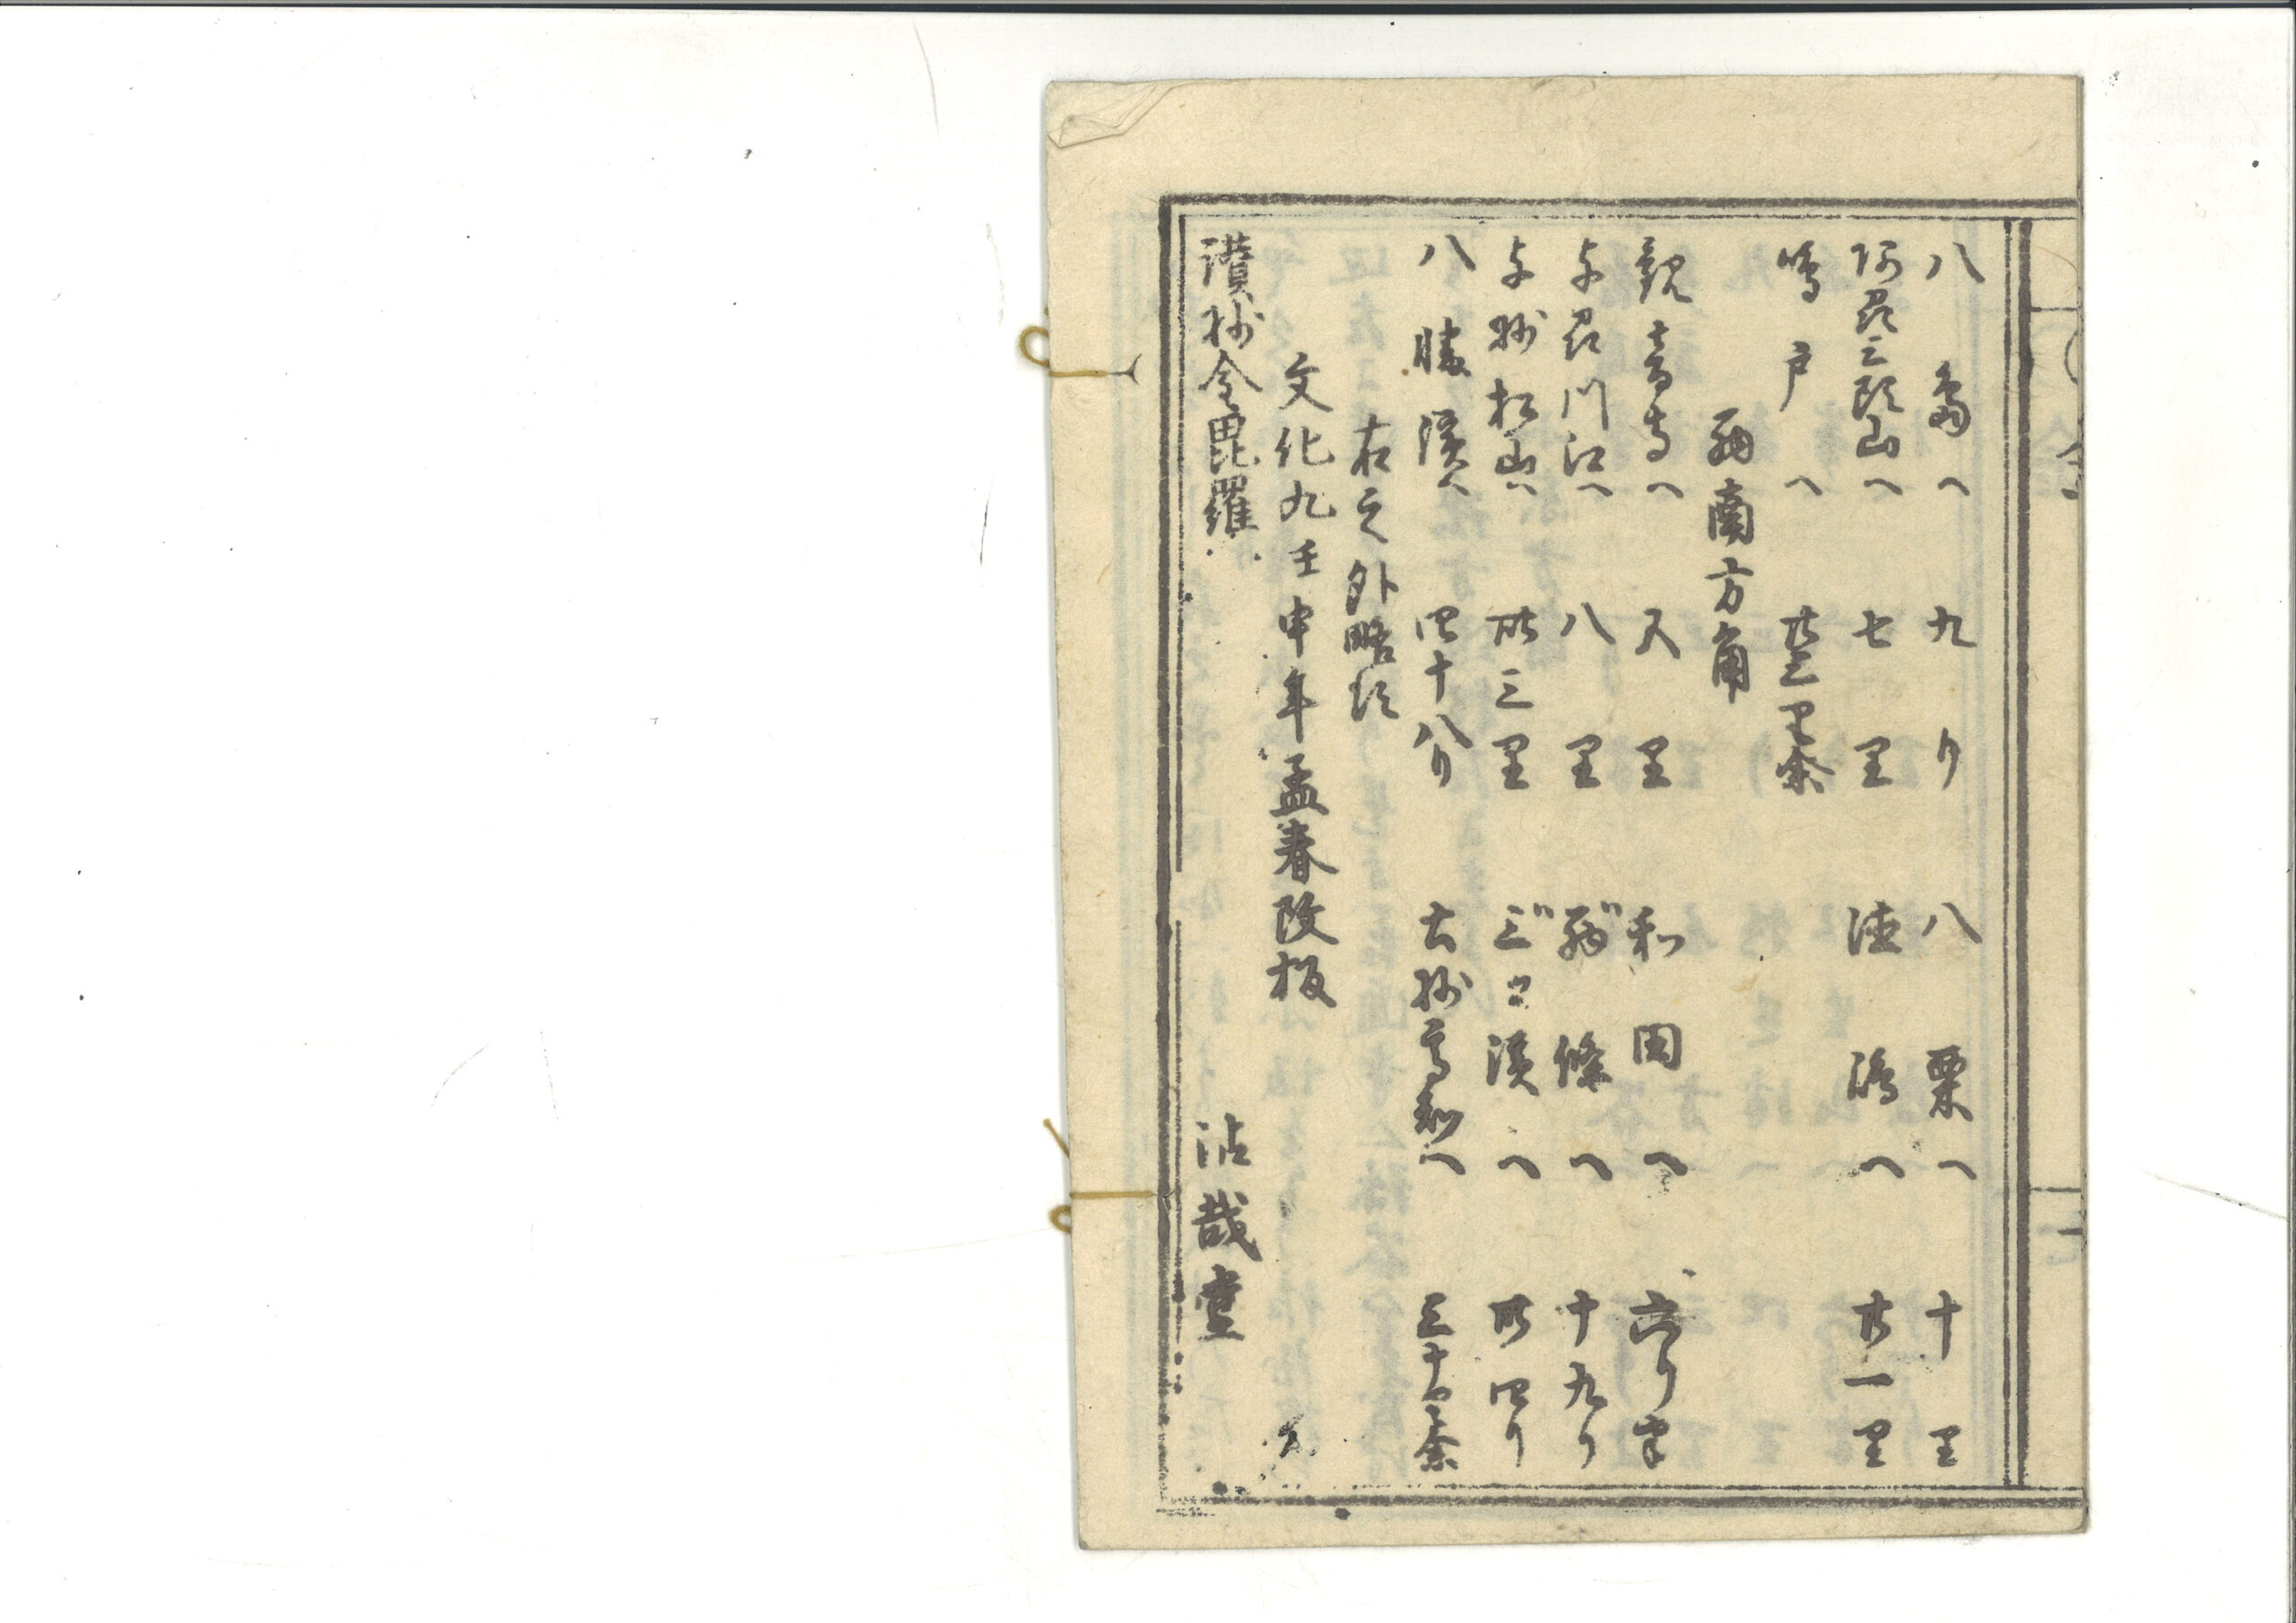 八島へ 九り 八栗へ 十里
阿州三頭山へ 七里 徳嶋へ 廿一里
鳴戸へ 廿三里余
西南方角
観音寺へ 五里 和田へ 六り半
与州川江へ 八里 西條へ 十九り
与州松山へ 卅三里 三ツ濱へ 卅四り
八幡濱へ 四十八り 土州高知へ 三十余
右之外略須
文化九壬申年孟春改板
讃州金毘羅 沾哉堂